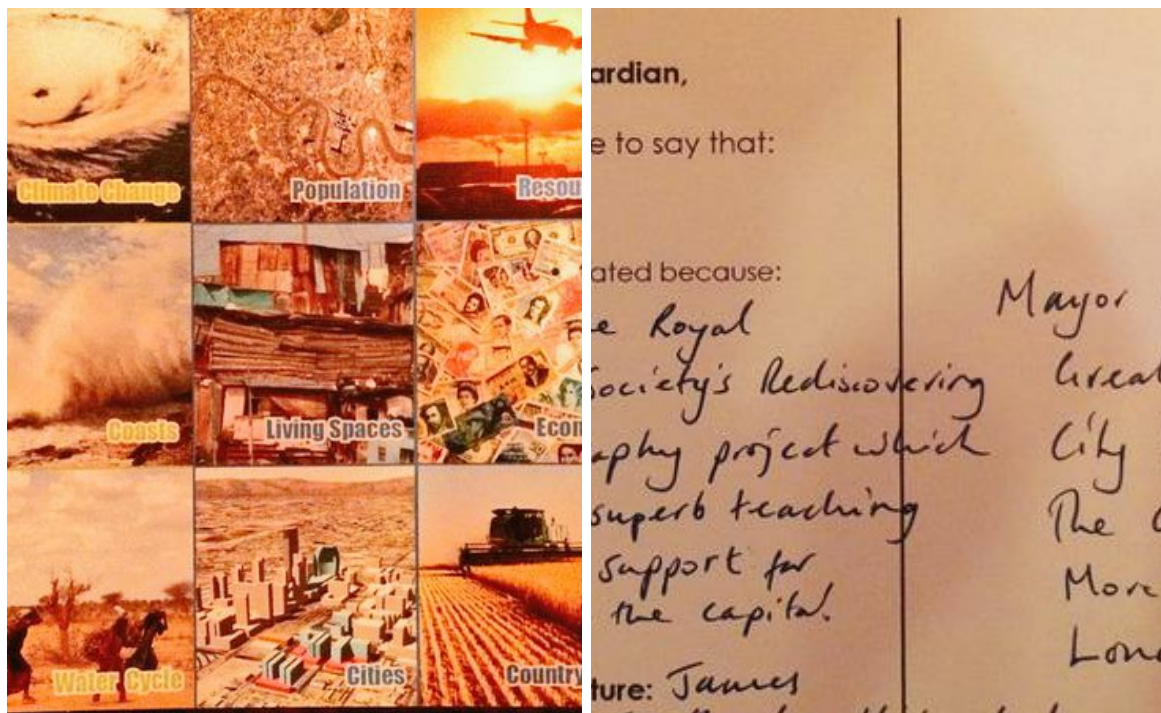 Climate Change
Population
Resou
Coasts
Living Spaces
Econ
Water Cycle
Cities
Country
ardian,
e to say that:
ated because:
e Royal
Society's Rediscovering
aphy project which
superb teaching
support for
the capital.
ture: James
Mayor
Great
City
The
More
Lond